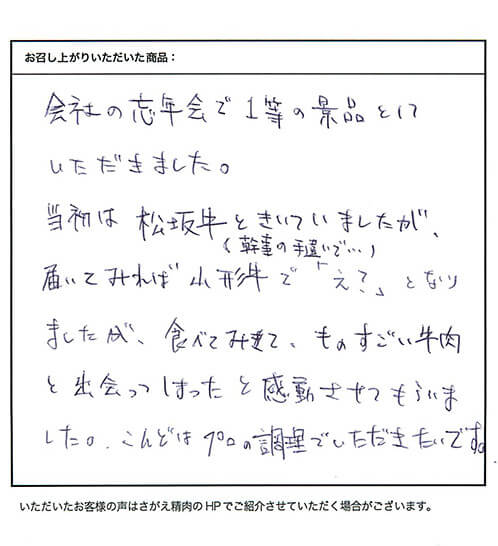 お召し上がりいただいた商品：
会社の忘年会で1等の景品として
いただきました。
当初は松坂牛ときいていましたが、
(幹事の手違いで…)
届いてみれば山形牛で「え？」となり
ましたが、食べてみて、ものすごい牛肉
と出会ってしまったと感動させてもらいま
した。こんどはプロの調理でいただきたいです。
いただいたお客様の声はさがえ精肉のHPでご紹介させていただく場合がございます。